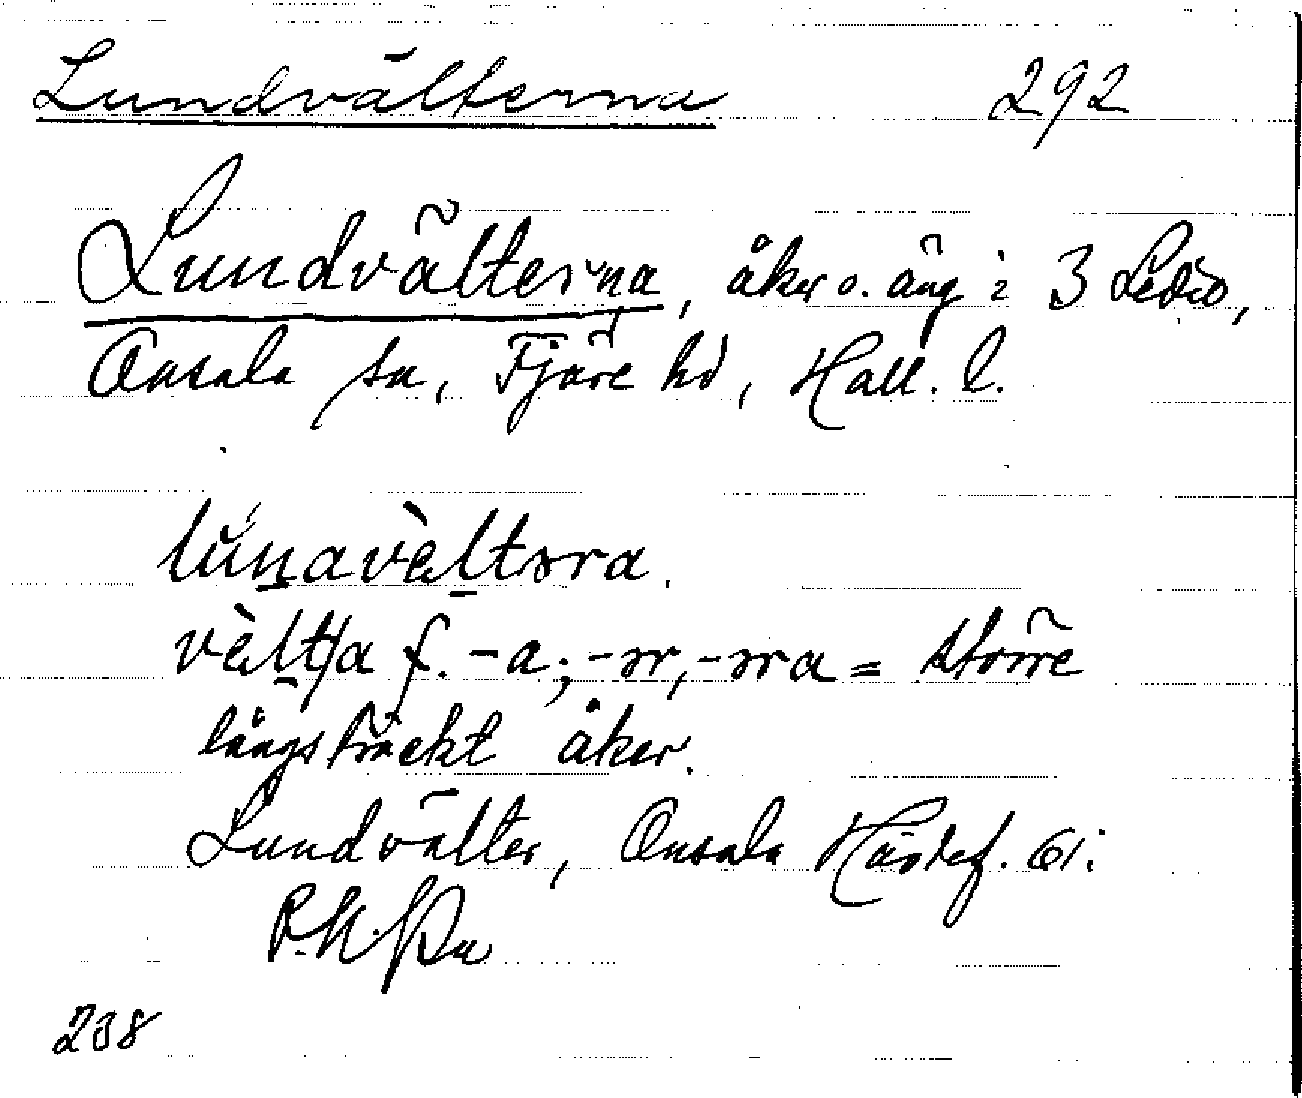 Lundvälterna 292
Lundvälterna, åker o. äng i 3 Ledio,
Onsala sn, Fjäre hd, Hall. l.
lúnavèltəra.
vèlt/a f. -a; -ər, -əra = större
långsträckt åker.
Lundvälter, Onsala Hästef. 61:
208